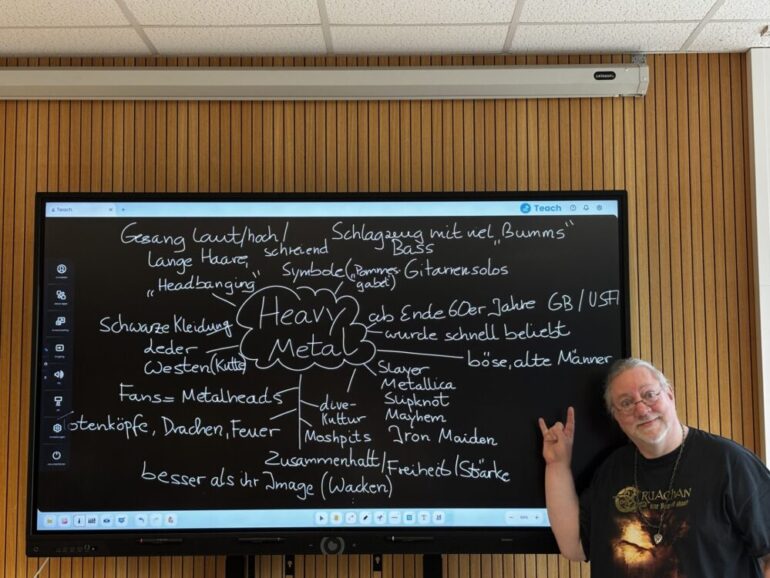 Teach
Teach
Gesang laut/hoch/
schreiend
Schlagzeug mit viel "Bumms"
Bass
Lange Haare,
"Headbanging"
Symbole ("Pommes-
gabel")
Gitarrensolos
Heavy
Metal
ab Ende 60er Jahre GB/USA
wurde schnell beliebt
böse, alte Männer
Schwarze Kleidung
Leder
Westen (Kutte)
Slayer
Metallica
Slipknot
Mayhem
Iron Maiden
Fans = Metalheads
Live-
Kultur
Moshpits
otenköpfe, Drachen, Feuer
Zusammenhalt/Freiheit/Stärke
besser als ihr Image (Wacken)
CRUACHAN